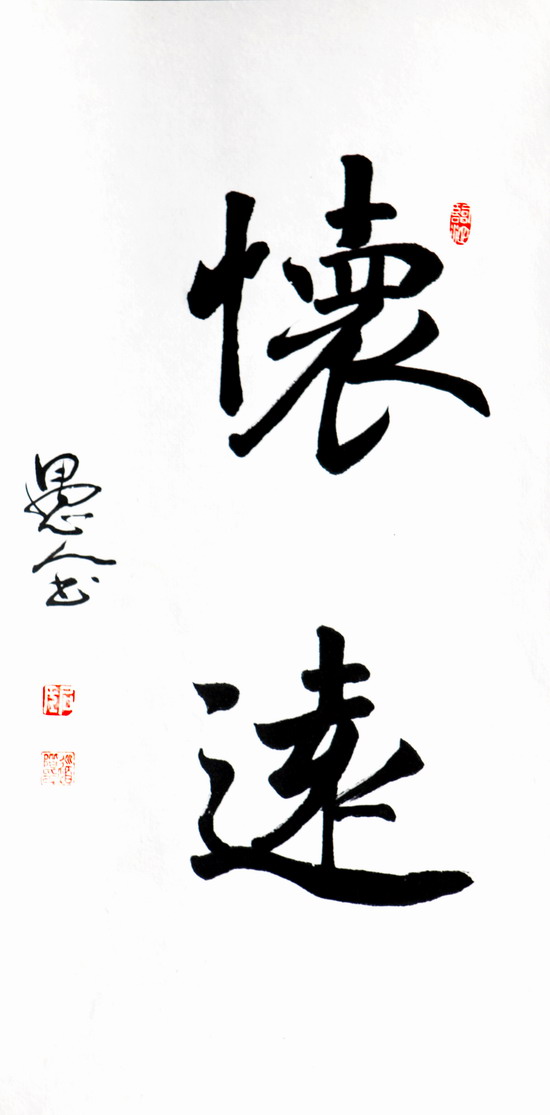 懷遠
愚人书